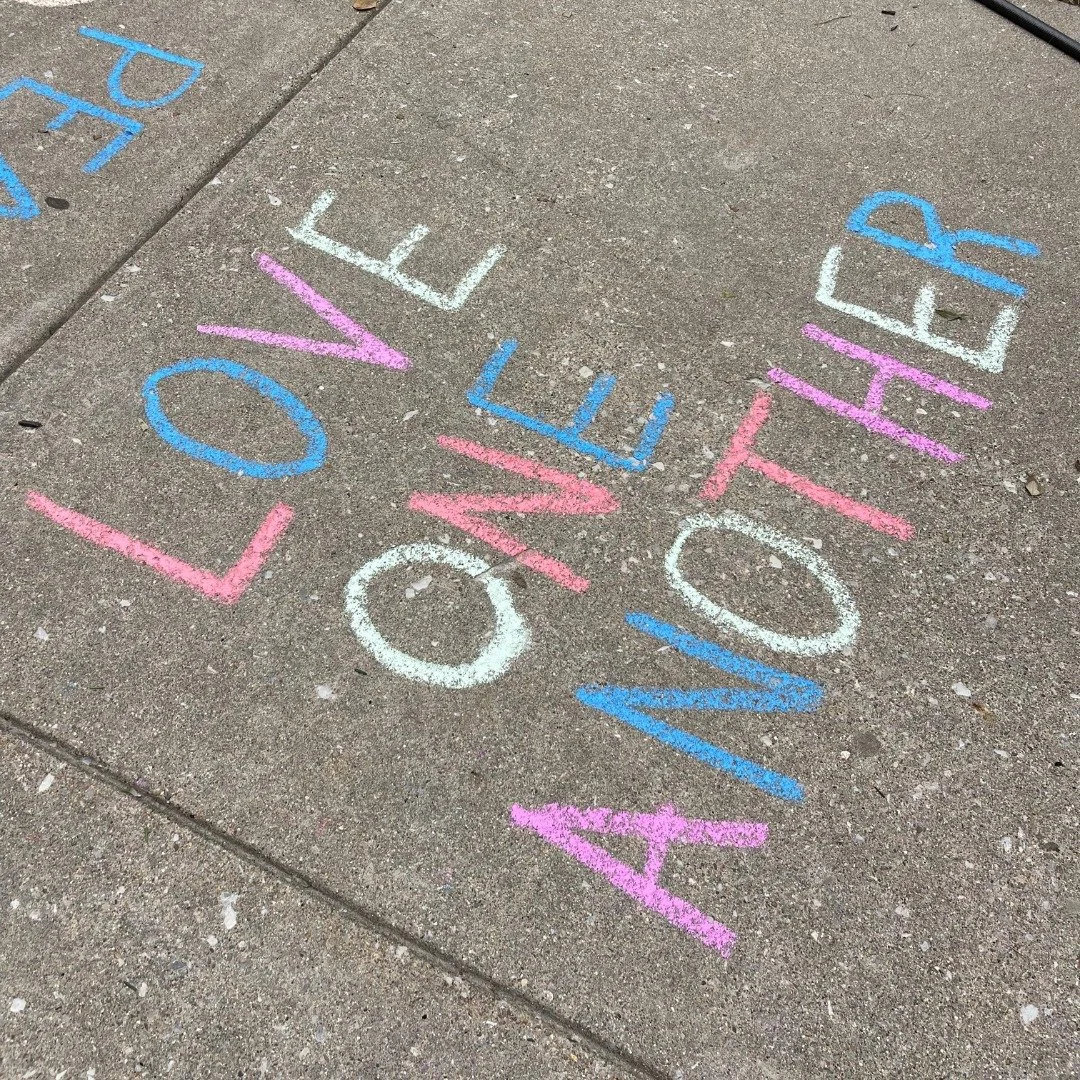 LOVE
ONE
ANOTHER